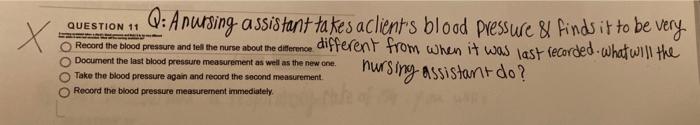 QUESTION 11 Q: A nursing assistant takes a client's blood pressure & finds it to be very
Record the blood pressure and tell the nurse about the difference. different from when it was last recorded. what will the
Document the last blood pressure measurement as well as the new one. nursing assistant do?
Take the blood pressure again and record the second measurement.
Record the blood pressure measurement immediately.